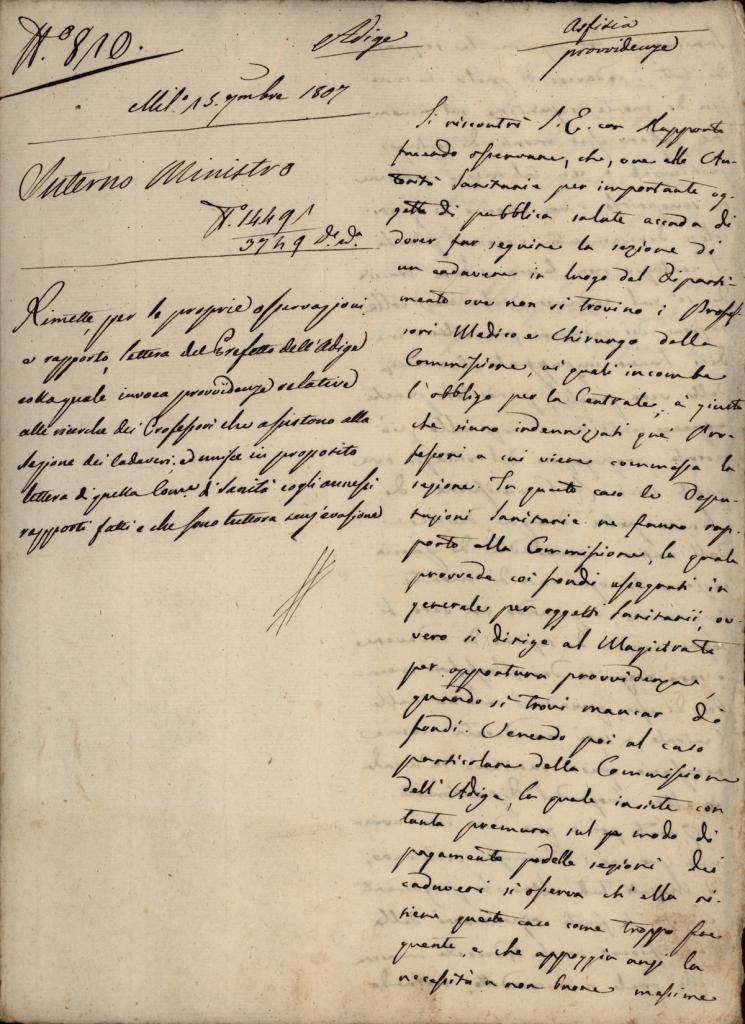 N.º 810.
Adige
Asfisia
provvidenze
Mil.º 15. 9mbre 1807
Interno Ministro
N.º 14491
3749 Di.Sa.
Rimette, per le proprie osservazioni
e rapporto, lettera del Prefetto dell'Adige
colla quale invoca provvidenze relative
alle ricerche dei Professori che assistono alla
Sezione dei Cadaveri, ed unisce in proposito
lettera di quella Com.e di Sanità cogli annessi
rapporti fatti e che sono tuttora senz'evasione
Si riscontri S. E. con Rapporto
facendo osservare, che, ove alle Au-
torità Sanitarie per importante og-
getto di pubblica salute accada di
dover far seguire la sezione di
un cadavere in luogo del diparti-
mento ove non si trovino i Profes-
sori Medico e Chirurgo della
Commissione, ai quali incombe
l'obbligo per la Centrale, è giusto
che siano indennizzati que' Pro-
fessori a cui viene commessa la
sezione. In questo caso le Depu-
tazioni Sanitarie ne fanno rap-
porto alla Commissione, la quale
provvede coi fondi assegnati in
generale per oggetti Sanitarii, ov-
vero si dirige al Magistrato
per opportuna provvidenza,
quando si trovi mancar di
fondi. Venendo poi al caso
particolare della Commissione
dell'Adige, la quale insiste con
tanta premura sul modo di
pagamento delle sezioni dei
cadaveri si osserva ch'ella ri-
tiene questo caso come troppo fre
quente, e che appoggia anzi la
necessità a non buone massime